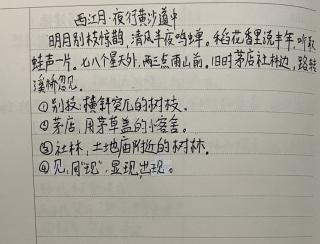 西江月·夜行黄沙道中
明月别枝惊鹊，清风半夜鸣蝉。稻花香里说丰年，听取
蛙声一片。七八个星天外，两三点雨山前。旧时茅店社林边，路转
溪桥忽见。
①别枝：横斜突兀的树枝。
②茅店：用茅草盖的小客舍。
③社林：土地庙附近的树林。
④见，同“现”，显现，出现。